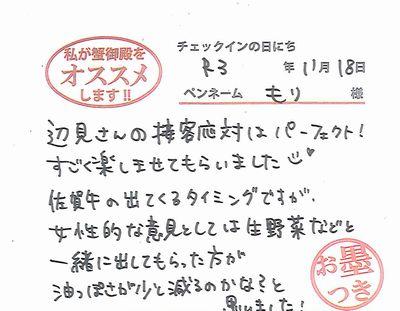 私が蟹御殿を
オススメ
します!!
チェックインの日にち
R3 年 11月 18日
ペンネーム もり 様
辺見さんの接客応対はパーフェクト!
すごく楽しませてもらいました
佐賀牛の出てくるタイミングですが、
女性的な意見としては生野菜などと
一緒に出してもらった方が
油っぽさが少と減るのかな?と
思いました!
お墨
つき